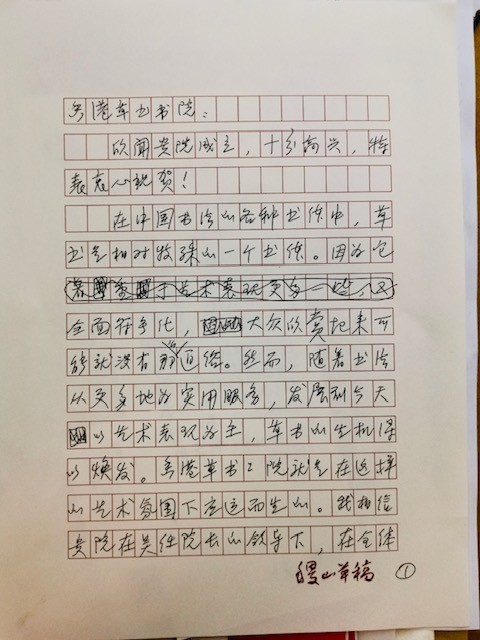 粤港草书书院：
欣闻贵院成立，十分高兴，特
表衷心祝贺！
在中国书法的各种书体中，草
书是相对特殊的一个书体。因为它
于艺术表现更多一些，又
全面符号化，大众欣赏起来可
能就没有那么直接。然而，随着书法
从更多地为实用服务，发展到今天
以艺术表现为主，草书的生机得
以焕发。粤港草书书院就是在这样
的艺术氛围下应运而生的。我相信
贵院在吴任院长的领导下，在全体
稷山草稿 ①